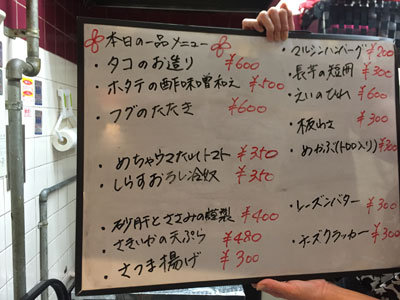 本日の一品メニュー
・タコのお造り ¥600
・ホタテの酢味噌和え ¥500
・フグのたたき ¥600
・めちゃウマたれトマト ¥350
・しらすおろし冷奴 ¥350
・砂肝とささみの燻製 ¥400
・さきいかの天ぷら ¥480
・さつま揚げ ¥300
・マルシンハンバーグ ¥200
・長芋の短冊 ¥300
・えいのひれ ¥600
・板わさ ¥300
・めかぶ(トロロ入り) ¥300
・レーズンバター ¥300
・チーズクラッカー ¥300